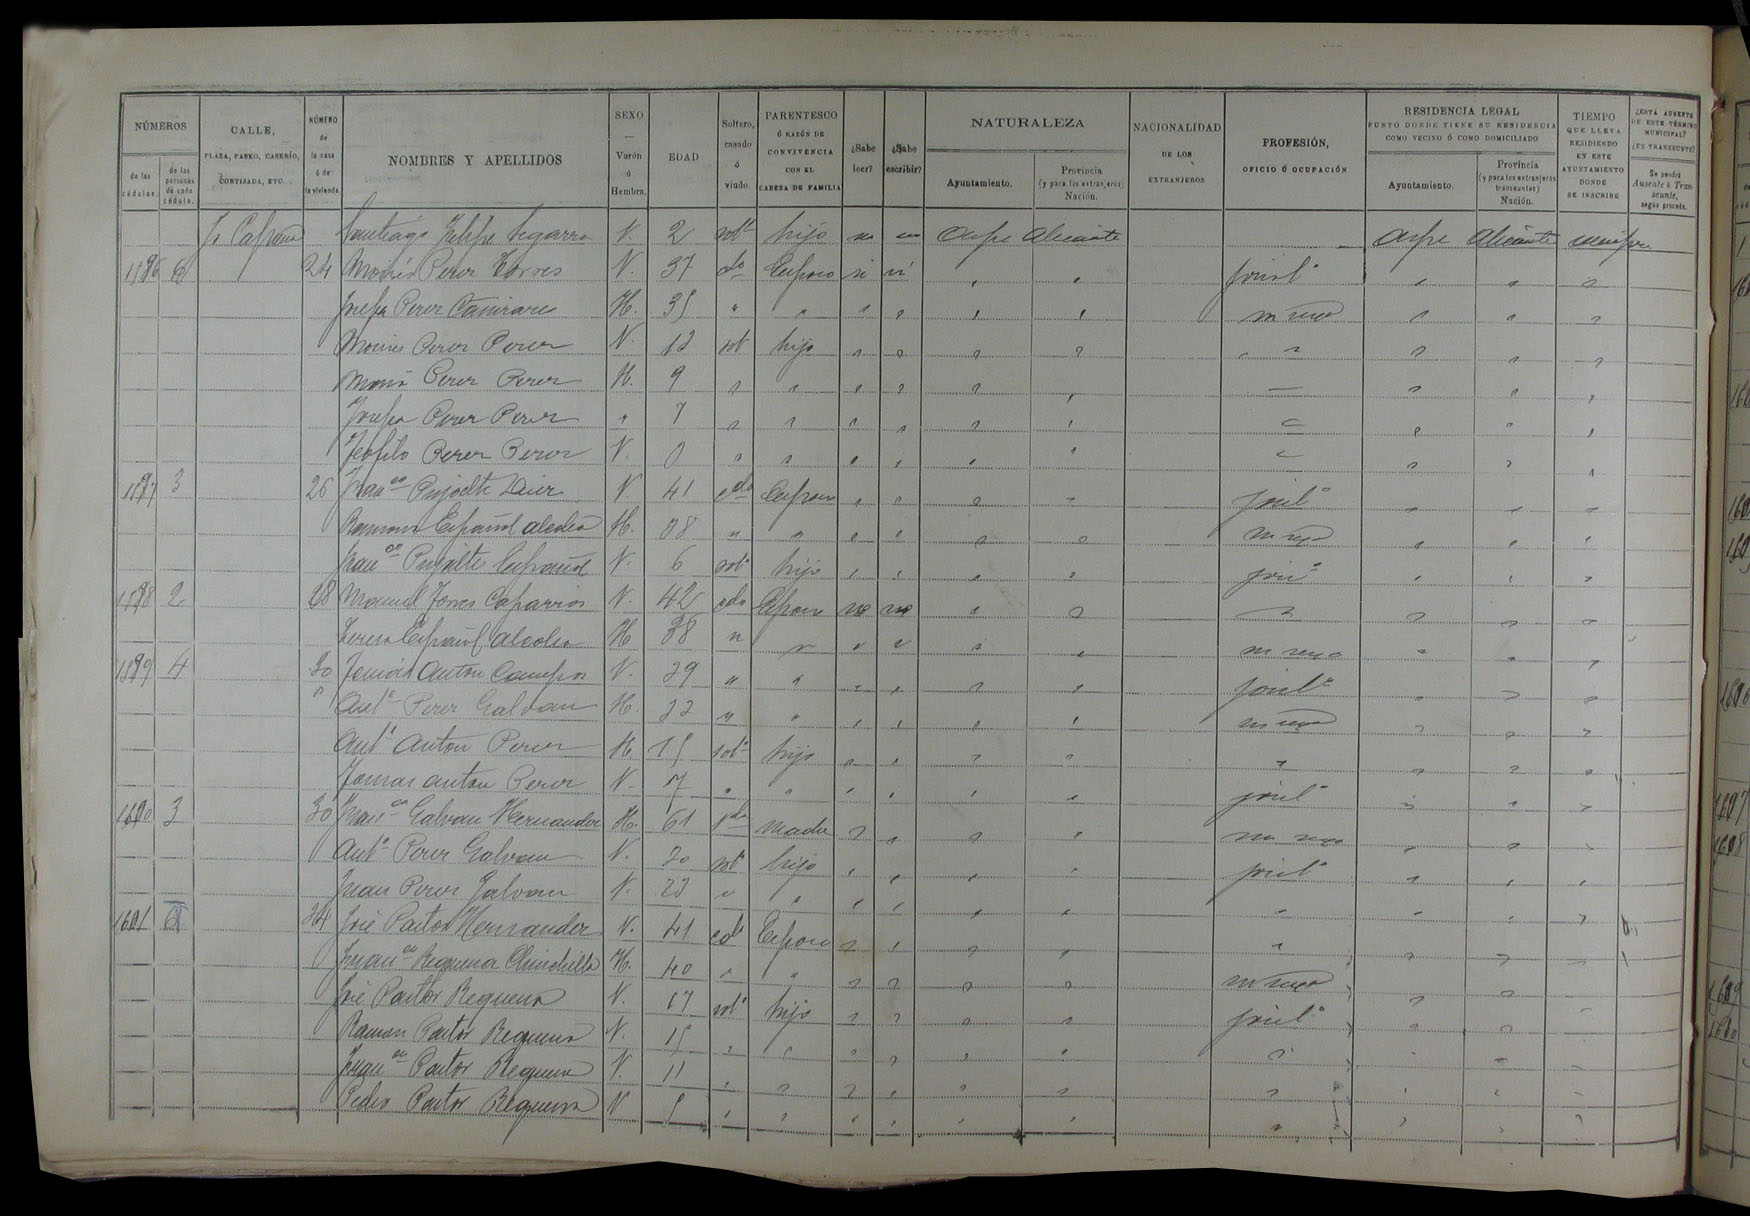 NÚMEROS
de las cédulas.
de las personas de cada cédula.
CALLE,
PLAZA, PASEO, CASERÍO, CORTIJADA, ETC.
NÚMERO de la casa ó de la vivienda.
NOMBRES Y APELLIDOS
SEXO — Varón ó Hembra.
EDAD
Soltero, casado ó viudo.
PARENTESCO Ó RAZÓN DE CONVIVENCIA CON EL CABEZA DE FAMILIA
¿Sabe leer?
¿Sabe escribir?
NATURALEZA
Ayuntamiento.
Provincia (y para los extranjeros) Nación.
NACIONALIDAD DE LOS EXTRANJEROS
PROFESIÓN, OFICIO Ó OCUPACIÓN
RESIDENCIA LEGAL
PUNTO DONDE TIENE SU RESIDENCIA COMO VECINO Ó COMO DOMICILIADO
Ayuntamiento.
Provincia (y para los extranjeros transeuntes) Nación.
TIEMPO QUE LLEVA RESIDIENDO EN ESTE AYUNTAMIENTO DONDE SE INSCRIBE
¿ESTÁ AUSENTE DE ESTE TÉRMINO MUNICIPAL? ¿ES TRANSEUNTE?
Se pondrá Ausente ó Transeunte, según proceda.
Santiago Felipe Segarra V. 2 solt hijo no no Aspe Alicante Aspe Alicante siempre
1596 6 24 Moisés Perez Torres V. 37 do Esposo si si jornlo " " "
Josefa Perez Cañizares H. 35 " " " " " " " " "
Moises Perez Perez V. 12 solt hijo " " " " " " " "
Maria Perez Perez H. 9 " " " " " " — " " "
Josefa Perez Perez " 7 " " " " " " " " "
Teofilo Perez Perez V. 0 " " " " " " " " "
1597 3 26 Franco Pujalte V. 41 cdo Esposo " " " " jornlo " " "
Ramona Español Alcolea H. 38 " " " " " " " " "
Franco Pujalte Español V. 6 solto hijo " " " " " " "
1598 2 28 Manuel Torres Caparros V. 42 cdo Esposo no no " " " " " "
Teresa Español Alcolea H 38 " " " " " " " " "
1599 4 30 Tomás Anton Campos V. 39 " " " " " " jornlo " " "
" Anta Perez Galvan H. 33 " " " " " " " " "
Anta Anton Perez H. 15 solta hijo " " " " " " " "
Tomas Anton Perez V. 7 " " " " " " jornlo " " "
1600 3 30 Franca Galvan Hernandez H. 61 vda Madre " " " " " " "
Anto Perez Galvan V. 30 solto hijo " " " " jornlo " " "
Juan Perez Galvan V. 23 " " " " " " " " " "
1601 6 34 José Pastor Hernandez V. 41 cdo Esposo " " " " " " " "
Franca Requena Chinchilla H. 40 " " " " " " " " "
José Pastor Requena V. 17 solto hijo " " " " jornlo " " "
Ramon Pastor Requena V. 15 " " " " " " " " " "
Franco Pastor Requena V 11 " " " " " " " " " "
Pedro Pastor Requena V 5 " " " " " " " " " "